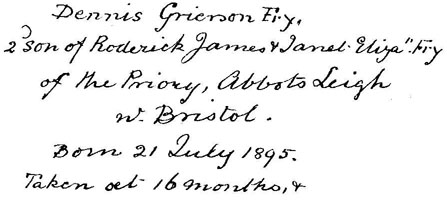 Dennis Grierson Fry,
2d son of Roderick James & Janet Eliza" Fry
of the Priory, Abbots Leigh
nr. Bristol.
Born 21 July 1895.
Taken aet 16 months, &